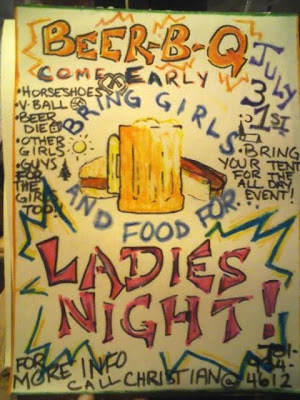 BEER-B-Q
COME EARLY
JULY
31ST
• HORSESHOES
• V-BALL
• BEER
DIE
• OTHER
GIRLS
GUYS
FOR
THE
GIRLS
TOO!
BRING GIRLS
AND FOOD FOR...
• BRING
YOUR TENT
FOR THE
ALL DAY
EVENT!
LADIES
NIGHT!
FOR
MORE INFO
CALL CHRISTIAN @
4612